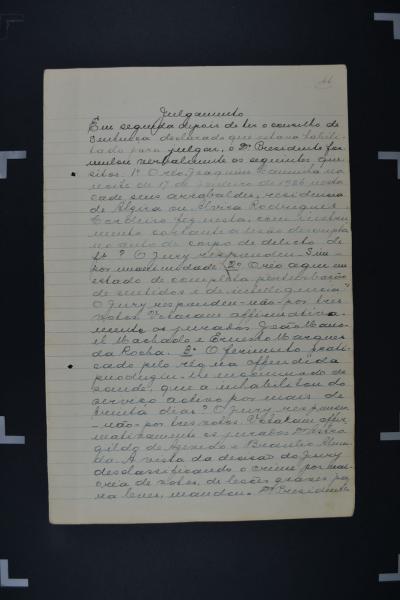 Julgamento
Em seguida depois de ter o conselho de
sentença declarado que estava habili-
tado para julgar, o Dr. Presidente for-
mulou verbalmente os seguintes que-
sitos: 1º O réo Joaquim Caminha na
noite de 17 de Janeiro de 1926 nesta
cidade seus arrabaldes, residencia
de Alzira ou Elvira Rodrigues
Cordeiro fez nesta, com instru-
mento cortante a lesão descripta
no auto de corpo de delicto de
fs? O Jury respondeu - Sim -
por unanimidade. 2º O réo agiu em
estado de completa perturbação
de sentidos e de intelligencia?
O Jury respondeu - não - por tres
votos. Votaram affirmativa-
mente os jurados João Mano-
el Machado e Ernesto Marques
da Rocha. 3º O ferimento prati-
cado pelo réo na offendida
produziu-lhe incommodo de
saude, que a inhabilitou do
serviço activo por mais de
trinta dias? O Jury respondeu
- não - por tres votos. Votaram affir-
mativamente os jurados
gildo de Azevedo e
da. A vista da decisão do Jury
desclassificando o crime por mai-
oria de votos, de lesões graves pa-
ra leves, mandou o Dr. Presidente